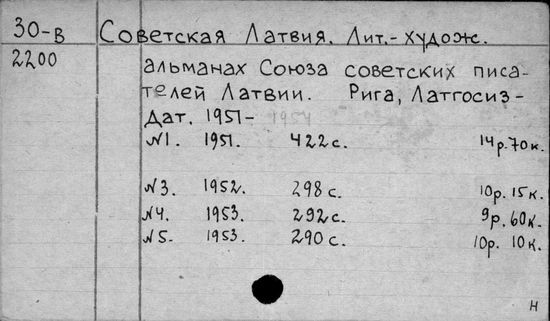 30-в Советская Латвия. Лит.-худож.
2200 альманах Союза советских писа-
телей Латвии. Рига, Латгосиз-
дат. 1951- 1954
№1. 1951. 422 с. 14р.70к.
№3. 1952. 298 с. 10р. 15к.
№4. 1953. 292 с. 9р. 60к.
№5. 1953. 290 с. 10р. 10к.
н